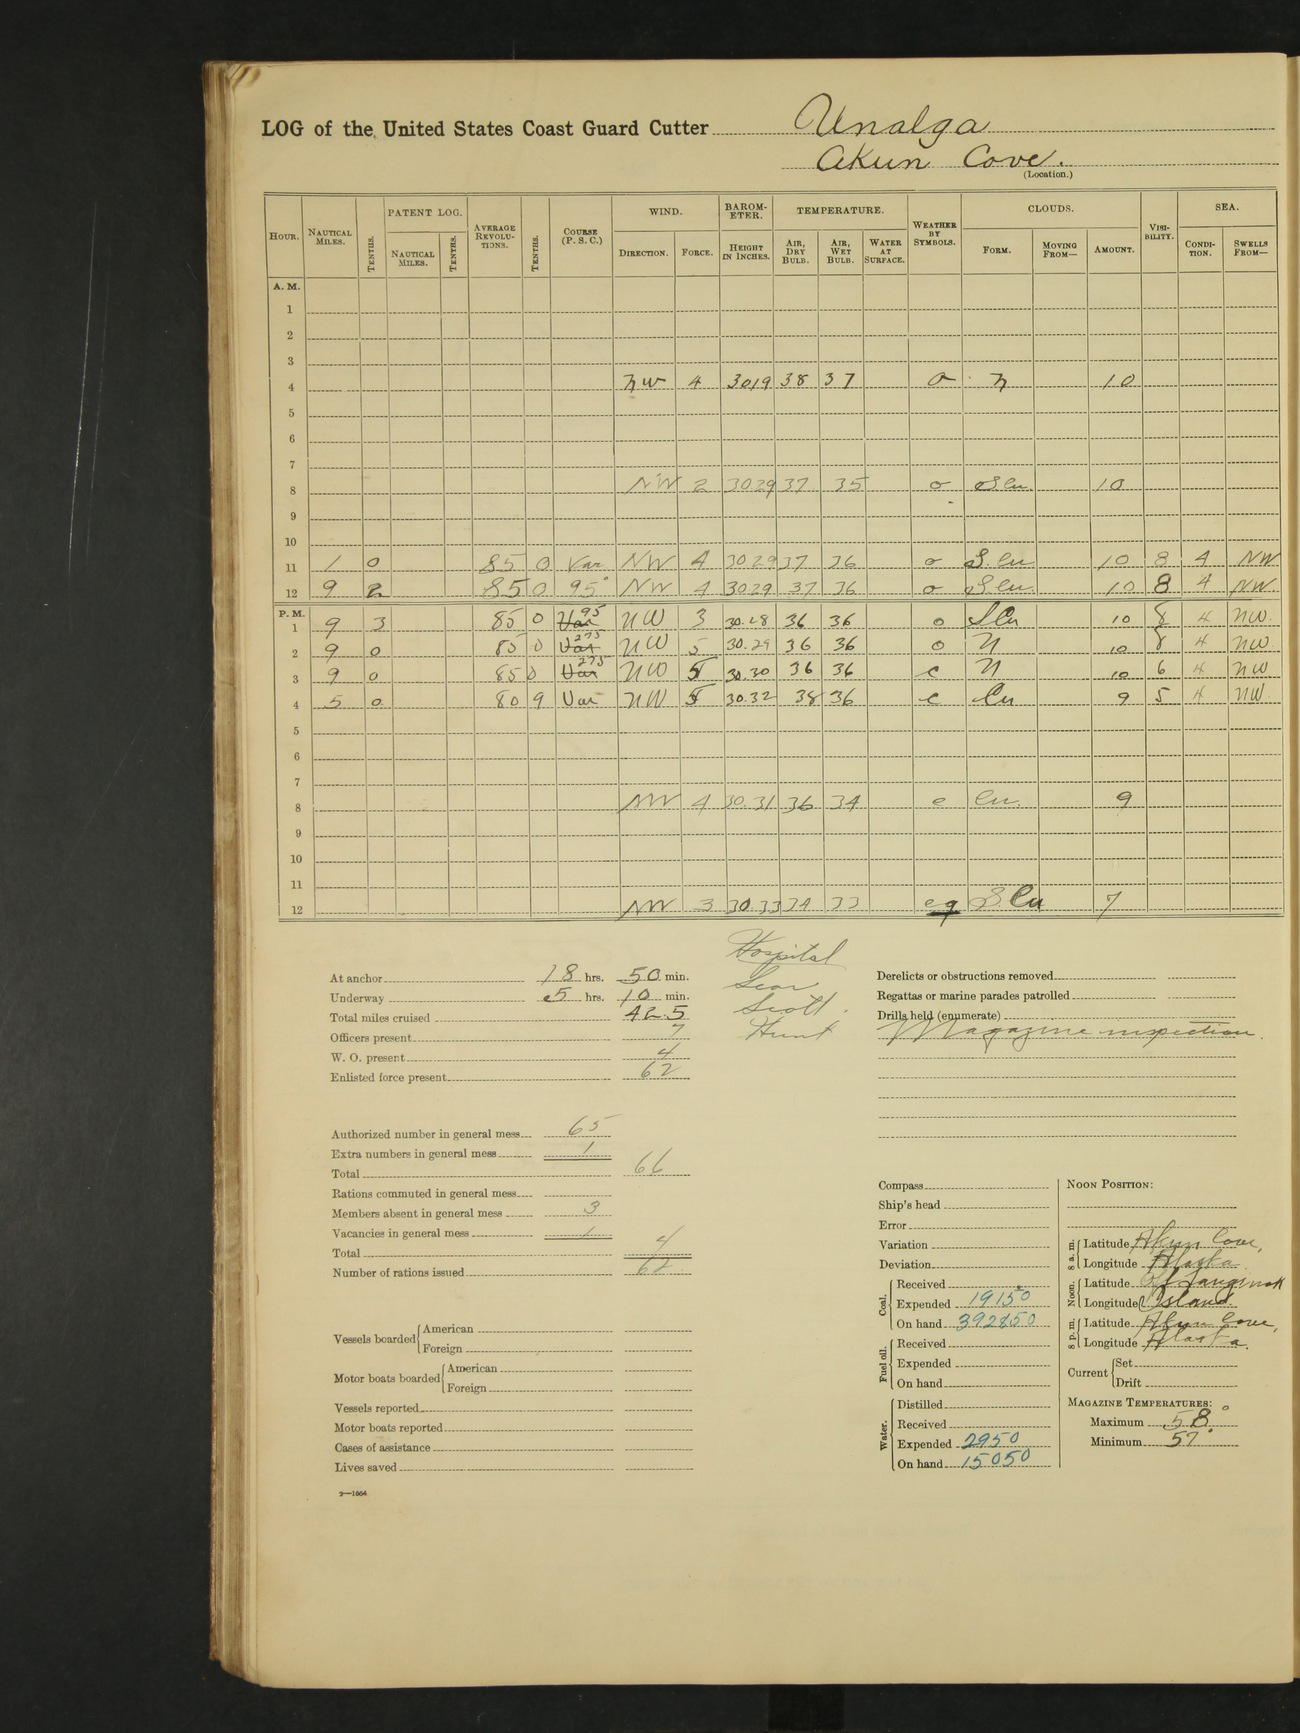 LOG of the United States Coast Guard Cutter Unalga
Akun Cove.
(Location.)
HOUR. NAUTICAL MILES. TENTHS. PATENT LOG. NAUTICAL MILES. TENTHS. AVERAGE REVOLUTIONS. TENTHS. COURSE (P. S. C.) WIND. DIRECTION. FORCE. BAROMETER. HEIGHT IN INCHES. TEMPERATURE. AIR, DRY BULB. AIR, WET BULB. WATER AT SURFACE. WEATHER BY SYMBOLS. CLOUDS. FORM. MOVING FROM— AMOUNT. VISIBILITY. SEA. CONDITION. SWELLS FROM—
A. M.
1
2
3
4 NW 4 3019 38 37 o N 10
5
6
7
8 NW 2 3029 37 35 o S.cu. 10
9
10
11 1 0 85 0 Var NW 4 3029 37 36 o S.cu 10 8 4 NW
12 9 2 85 0 95° NW 4 3029 37 36 o S.cu. 10 8 4 NW
P. M.
1 9 3 85 0 Var 95 NW 3 30.28 36 36 o S Cu 10 8 4 NW.
2 9 0 85 0 Var 275 NW 5 30.29 36 36 o N 10 8 4 NW
3 9 0 85 0 Var 275 NW 5 30.30 36 36 c N 10 6 4 NW
4 5 0 80 9 Var NW 5 30.32 38 36 c Cu 9 5 4 NW.
5
6
7
8 NW 4 30.31 36 34 c cu. 9
9
10
11
12 NW 3 30.33 34 33 cq S.Cu 7
Hospital
Scott.
Hunt
At anchor 18 hrs. 50 min.
Underway 5 hrs. 10 min.
Total miles cruised 42.5
Officers present 7
W. O. present 4
Enlisted force present 62
Authorized number in general mess 65
Extra numbers in general mess 1
Total 66
Rations commuted in general mess
Members absent in general mess 3
Vacancies in general mess 1
Total 4
Number of rations issued 62
Vessels boarded American
Foreign
Motor boats boarded American
Foreign
Vessels reported
Motor boats reported
Cases of assistance
Lives saved
2—1664
Derelicts or obstructions removed
Regattas or marine parades patrolled
Drills held (enumerate)
Magazine inspection.
Compass
Ship's head
Error
Variation
Deviation
Coal. Received
Expended 19150
On hand 392850
Fuel oil. Received
Expended
On hand
Water. Distilled
Received
Expended 2950
On hand 15050
NOON POSITION:
8 a. m. Latitude Akun Cove,
Longitude Alaska.
Noon. Latitude Off Tanginak
Longitude Island.
8 p. m. Latitude Akun Cove,
Longitude Alaska.
Current Set
Drift
MAGAZINE TEMPERATURES:
Maximum 58°
Minimum 57°